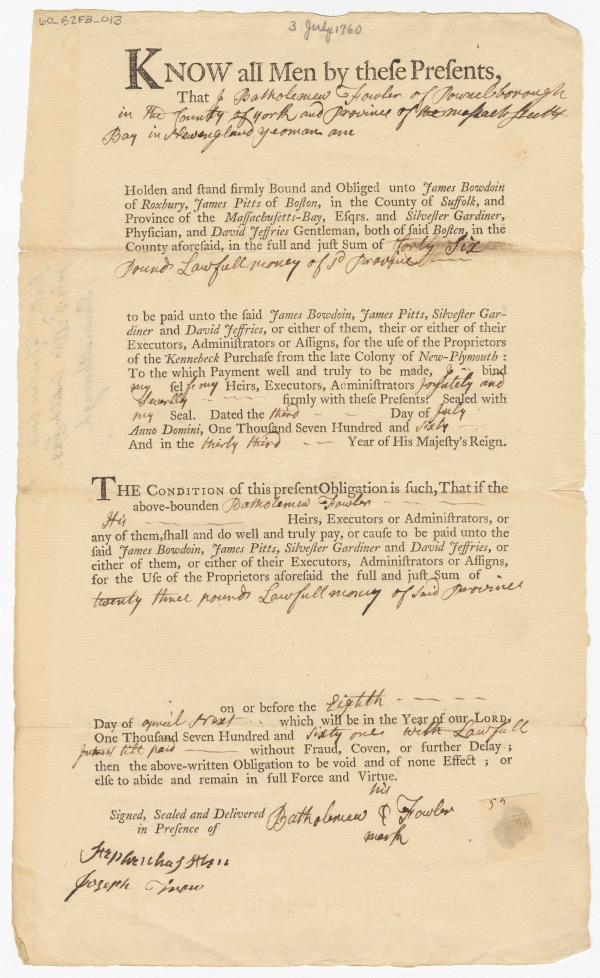 60_B2F3_013
3 July 1760
KNOW all Men by theſe Preſents,
That I Batholemew Fowler of Pownelborough
in the County of york and Province of the Massachusetts
Bay in Newengland yeoman am
Holden and ſtand firmly Bound and Obliged unto James Bowdoin
of Roxbury, James Pitts of Boſton, in the County of Suffolk, and
Province of the Maſſachuſetts-Bay, Eſqrs. and Silveſter Gardiner,
Phyſician, and David Jeffries Gentleman, both of ſaid Boſton, in the
County aforeſaid, in the full and juſt Sum of forty Six
Pounds Lawfull money of sd Province
to be paid unto the ſaid James Bowdoin, James Pitts, Silveſter Gar-
diner and David Jeffries, or either of them, their or either of their
Executors, Adminiſtrators or Aſſigns, for the uſe of the Proprietors
of the Kennebeck Purchaſe from the late Colony of New-Plymouth:
To the which Payment well and truly to be made, I bind
my ſelf my Heirs, Executors, Adminiſtrators and
Severlly firmly with theſe Preſents. Sealed with
my Seal. Dated the third Day of July
Anno Domini, One Thouſand Seven Hundred and sixty
And in the thirty third Year of His Majeſty's Reign.
THE CONDITION of this preſent Obligation is ſuch, That if the
above-bounden Batholemew Fowler
His Heirs, Executors or Adminiſtrators, or
any of them, ſhall and do well and truly pay, or cauſe to be paid unto the
ſaid James Bowdoin, James Pitts, Silveſter Gardiner and David Jeffries, or
either of them, or either of their Executors, Adminiſtrators or Aſſigns,
for the Uſe of the Proprietors aforeſaid the full and juſt Sum of
twenty three pounds Lawfull money of Said Province
on or before the Eighth
Day of next which will be in the Year of our LORD,
One Thouſand Seven Hundred and sixty one with Lawfull
till paid without Fraud, Coven, or further Delay;
then the above-written Obligation to be void and of none Effect; or
elſe to abide and remain in full Force and Virtue.
his
Signed, Sealed and Delivered Batholemew Fowler
in Preſence of mark
Joseph